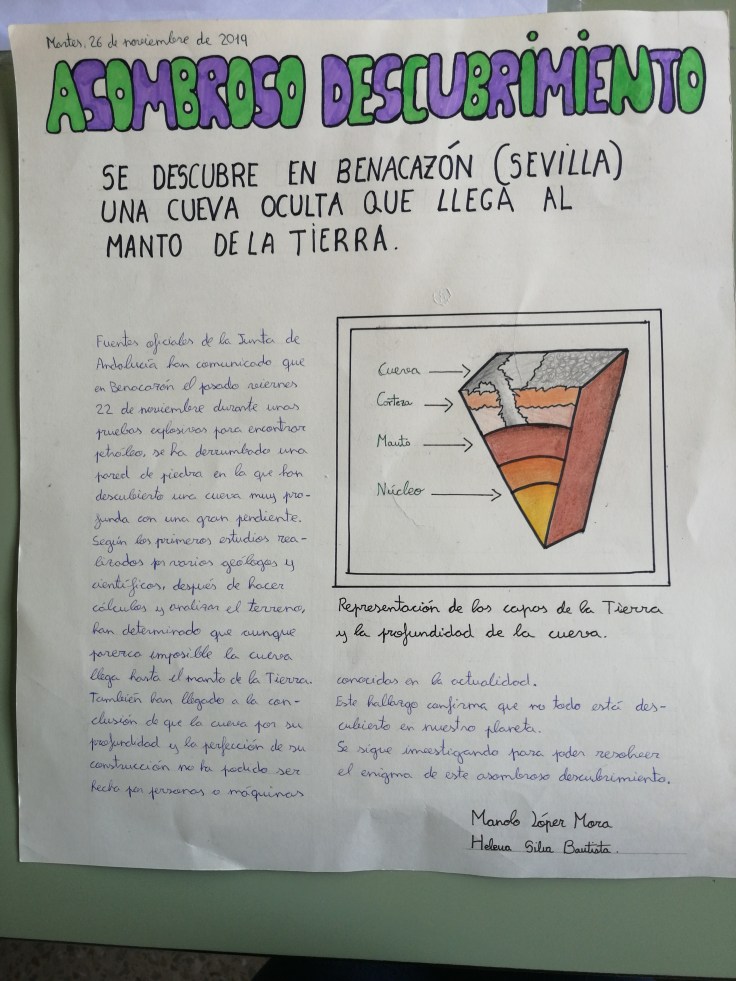 Martes, 26 de noviembre de 2019
ASOMBROSO DESCUBRIMIENTO
SE DESCUBRE EN BENACAZÓN (SEVILLA)
UNA CUEVA OCULTA QUE LLEGA AL
MANTO DE LA TIERRA.
Fuentes oficiales de la Junta de
Andalucía han comunicado que
en Benacazón el pasado viernes
22 de noviembre durante unas
pruebas explosivas para encontrar
petróleo, se ha derrumbado una
pared de piedra en la que han
descubierto una cueva muy pro-
funda con una gran pendiente.
Según los primeros estudios rea-
lizados por varios geólogos y
científicos, después de hacer
cálculos y analizar el terreno,
han determinado que aunque
parezca imposible la cueva
llega hasta el manto de la Tierra.
También han llegado a la con-
clusión de que la cueva por su
profundidad y la perfección de su
construcción no ha podido ser
hecha por personas o máquinas
Cueva
Corteza
Manto
Núcleo
Representación de las capas de la Tierra
y la profundidad de la cueva.
conocidas en la actualidad.
Este hallazgo confirma que no todo está des-
cubierto en nuestro planeta.
Se sigue investigando para poder resolver
el enigma de este asombroso descubrimiento.
Manolo López Mora
Helena Silva Bautista.